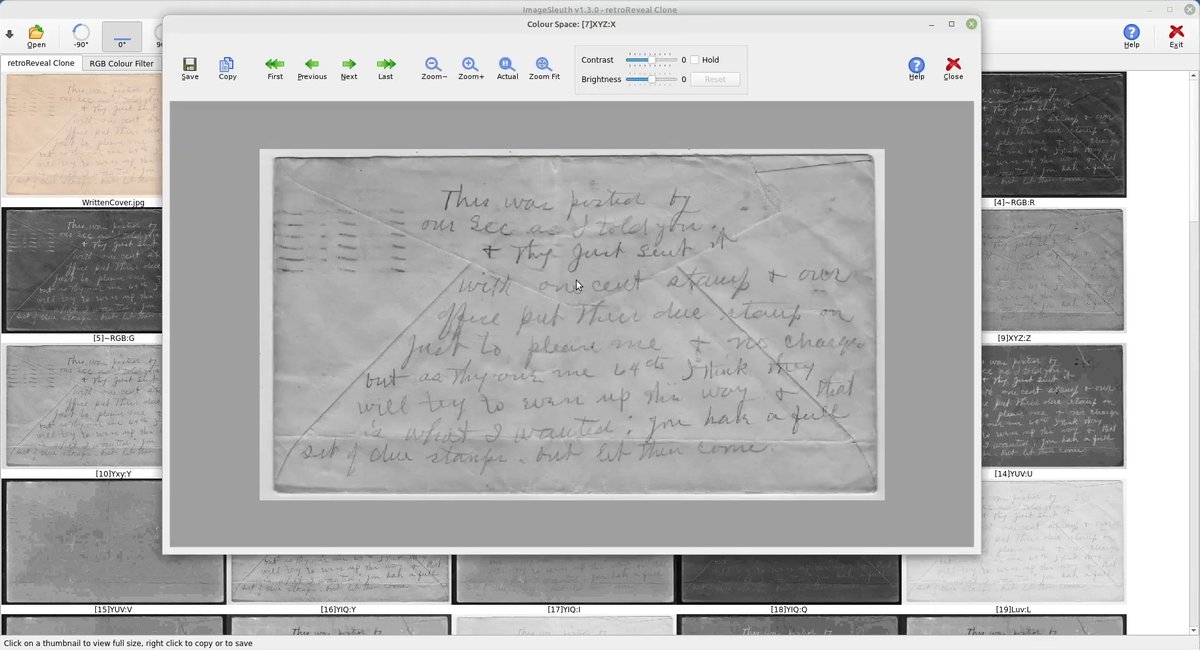 ImageSleuth v1.3.0 - retroReveal Clone
Colour Space: [7]XYZ:X
Open
-90°
0°
Help
Exit
retroReveal Clone
RGB Colour Filter
Save
Copy
First
Previous
Next
Last
Zoom−
Zoom+
Actual
Zoom Fit
Contrast
0
Hold
Brightness
0
Reset
Help
Close
This was posted by
our Sec as I told you.
+ They Just sent it
with one cent stamp + our
office put their due stamp on
just to please me + no charge
but as they owe me 64cts I think they
will try to even up this way + that
is what I wanted; you have a full
set of due stamps. but let them come.
WrittenCover.jpg
[4]~RGB:R
[5]~RGB:G
[9]XYZ:Z
[10]Yxy:Y
[14]YUV:U
[15]YUV:V
[16]YIQ:Y
[17]YIQ:I
[18]YIQ:Q
[19]Luv:L
Click on a thumbnail to view full size, right click to copy or to save